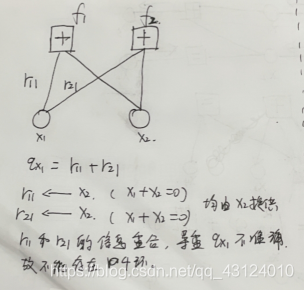 f₁ f₂
+ +
r₁₁ r₂₁
x₁ x₂
q_x₁ = r₁₁ + r₂₁
r₁₁ ← x₂ (x₁+x₂=0)
r₂₁ ← x₂ (x₁+x₂=0) 均由x₂提供
r₁₁和r₂₁的信息重合,导致q_x₁不准确.
故不能存在四环.
https://blog.csdn.net/qq_43124010